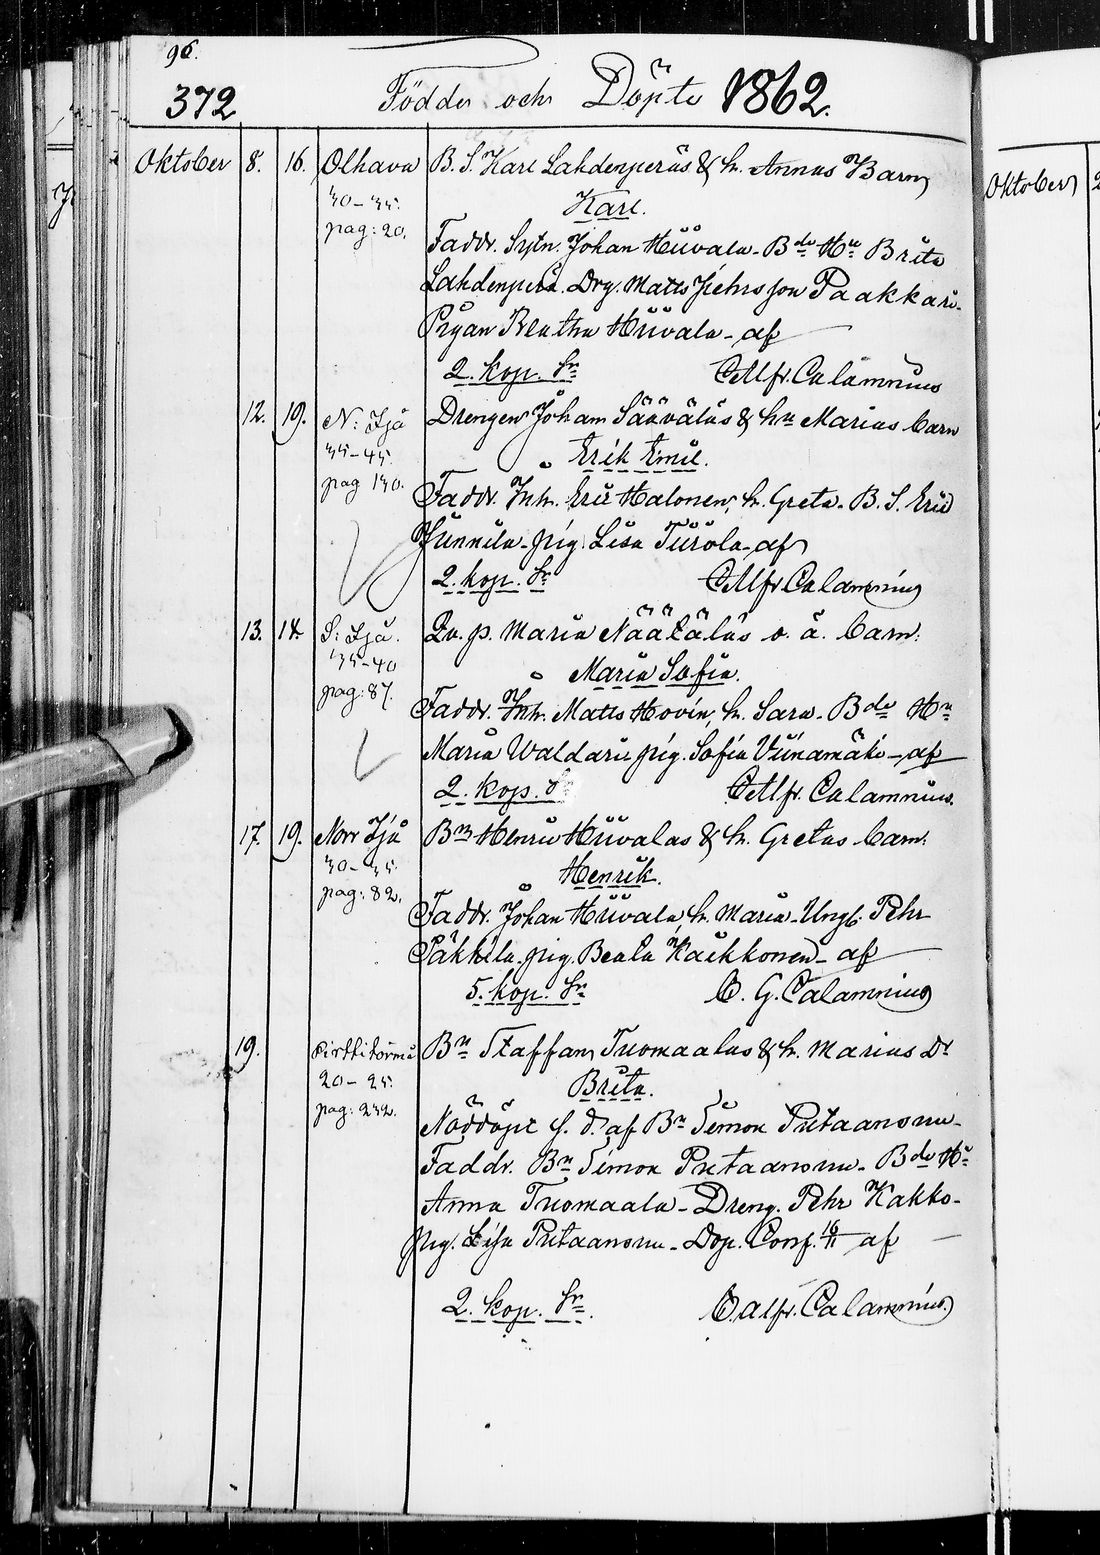 96.
372 Födde och Döpte 1862.
Oktober 8. 16. Olhava B. S. Karl Lahdenperäs & h. Annas Barn
30-35. Karl.
pag: 20. Faddr. Sytn. Johan Hiivala - Bde Hu Brita
Lahdenperä. Drg. Matts Pehrsson Paakkari-
Pigan Beatha Hiivala - af
2. kop. Sr C Alfr. Calamnius
12. 19. N: Ijå Drengen Johan Sääväläs & hu Marias barn
35-45. Erik Emil.
pag 130. Faddr. Inh. Eric Halonen, h. Greta - B. S. Eric
Junnila - pig. Lisa Tiirola - af
2. kop. Sr C Alfr Calamnius
13. 18. S: Ijå. Qv. p. Maria Näätäläs o. ä. barn:
35-40 Maria Sofia.
pag: 87. Faddr. Inh. Matts Hovin, h. Sara - Bde Hu
Maria Waldari pig. Sofia Viinamäki - af
2. kop. Sr C Alfr. Calamnius.
17. 19. Norr Ijå Bn Henric Hiivalas & h. Gretas barn:
30-35. Henrik.
pag: 82. Faddr. Johan Hiivala h. Maria - Ungk. Pehr
Päkkilä - pig. Beata Kaikkonen - af
5. kop. Sr C. G. Calamnius
19. Pirttitörmä Bn Staffan Tuomaalas & h. Marias Dr
20-25. Brita.
pag: 232. Nöddöpt s. d. af Bn Simon Putaansuu -
Faddr. Bn Simon Putaansuu - Bde Hu
Anna Tuomaala - Dreng. Pehr Kakko -
pig. Lisa Putaansuu - Dop. Conf. 16/11 af
2. kop. Sr. C. Alfr. Calamnius.
Oktober